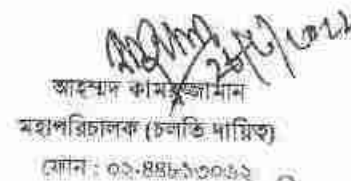 আহম্মদ কামরুজ্জামান
মহাপরিচালক (চলতি দায়িত্ব)
ফোন : ০২-৪৪৮১৩০৬২